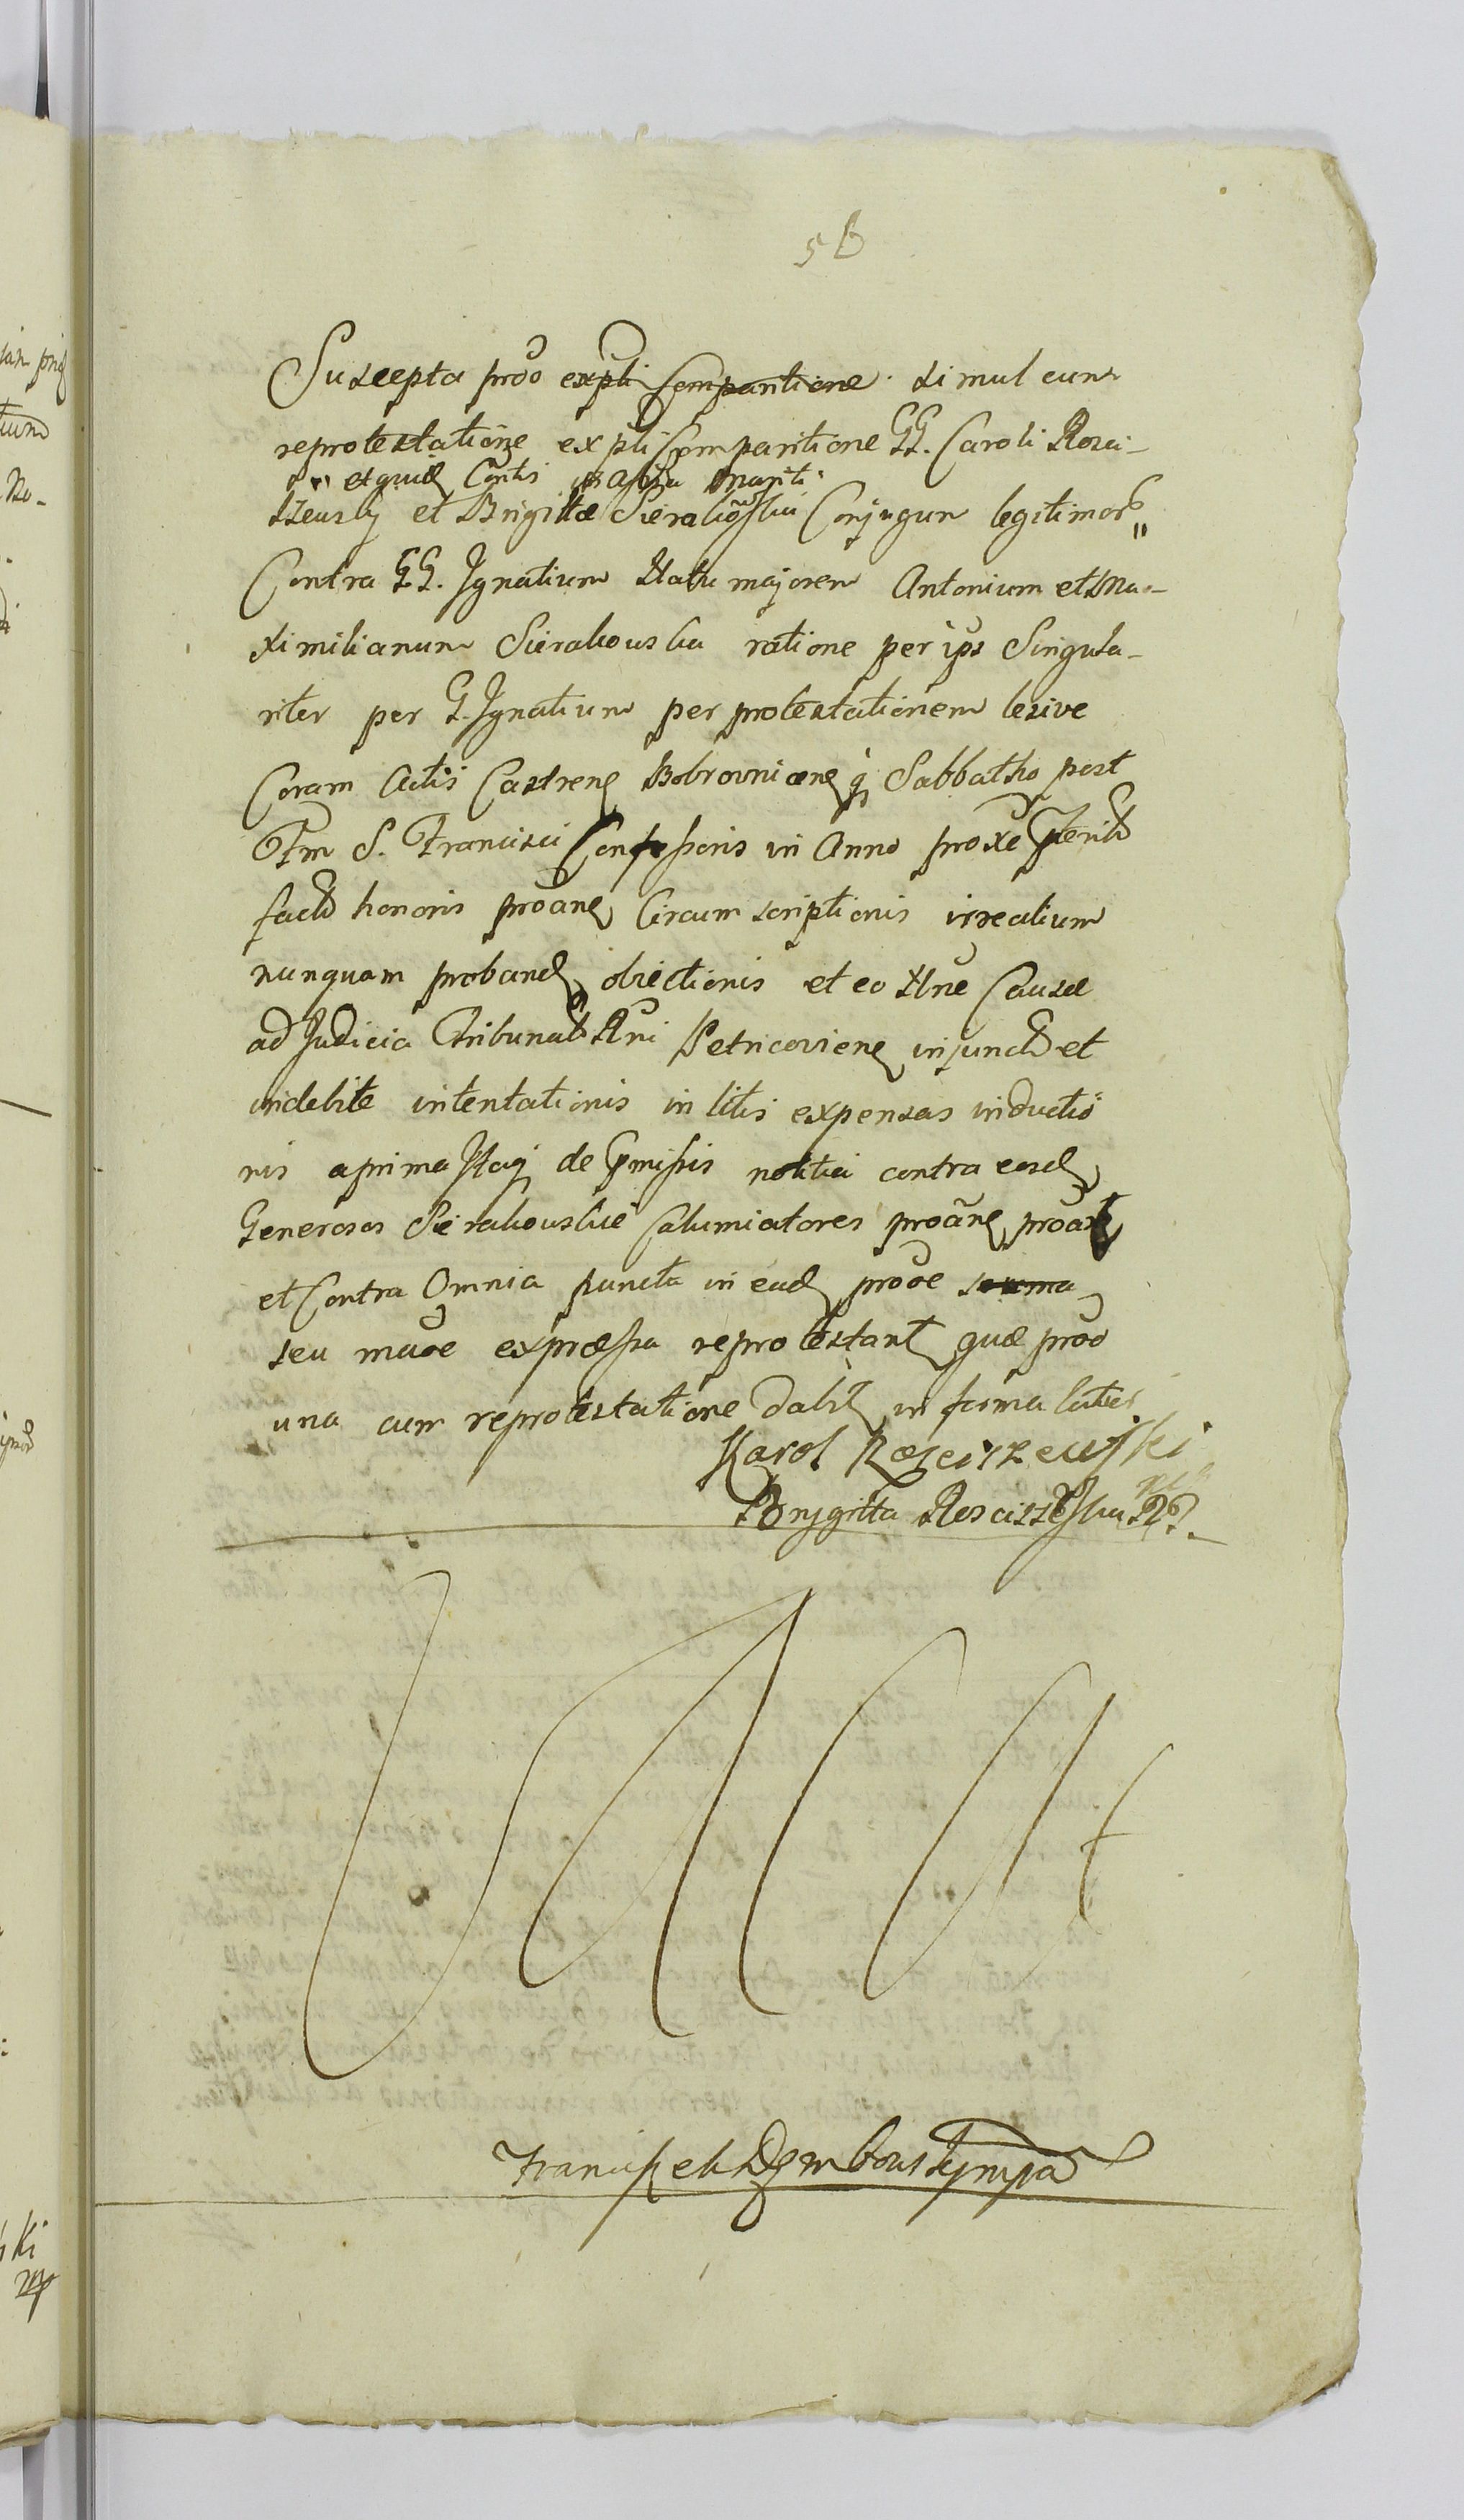 56
Suscepta proō expti Comparitione simul cum
reprotestatione expti Comparitione GG. Caroli Rosci-
szewsky et Brigittæ Sierakoẘskii Conjugum legitimor̄
et quid Contis assa mariti
Contra GG. Ignatium Natu majorem Antonium et Ma-
ximilianum Sierakouskii ratione per ips Singula-
riter per G. Ignatium per protestationem lesive
Coram Actis Castren Bobrovnicen q Sabbatho post
Ftm S. Francisci Confessoris in Anno proxe pterito
facto honoris proane Circumscriptionis irrealium
nunquam proband obiectionis et eo Nne Causæ
ad Judicia Tribunal Rni Petricovien injuncto et
indebite intentationis in litis expensas inductio
nis a prima stag de pmissis notitia contra eosd
Generosos Sierakouskie Calumiatores proane proar
et Contra Omnia puncta in ead prooe summa
seu mage expressa reprotestant quæ proō
una cum reprotestatione dabit in forma latiei
Karol Rosciszewski
Brygitta Rosciszeska
Franciszek Dembouski mpa